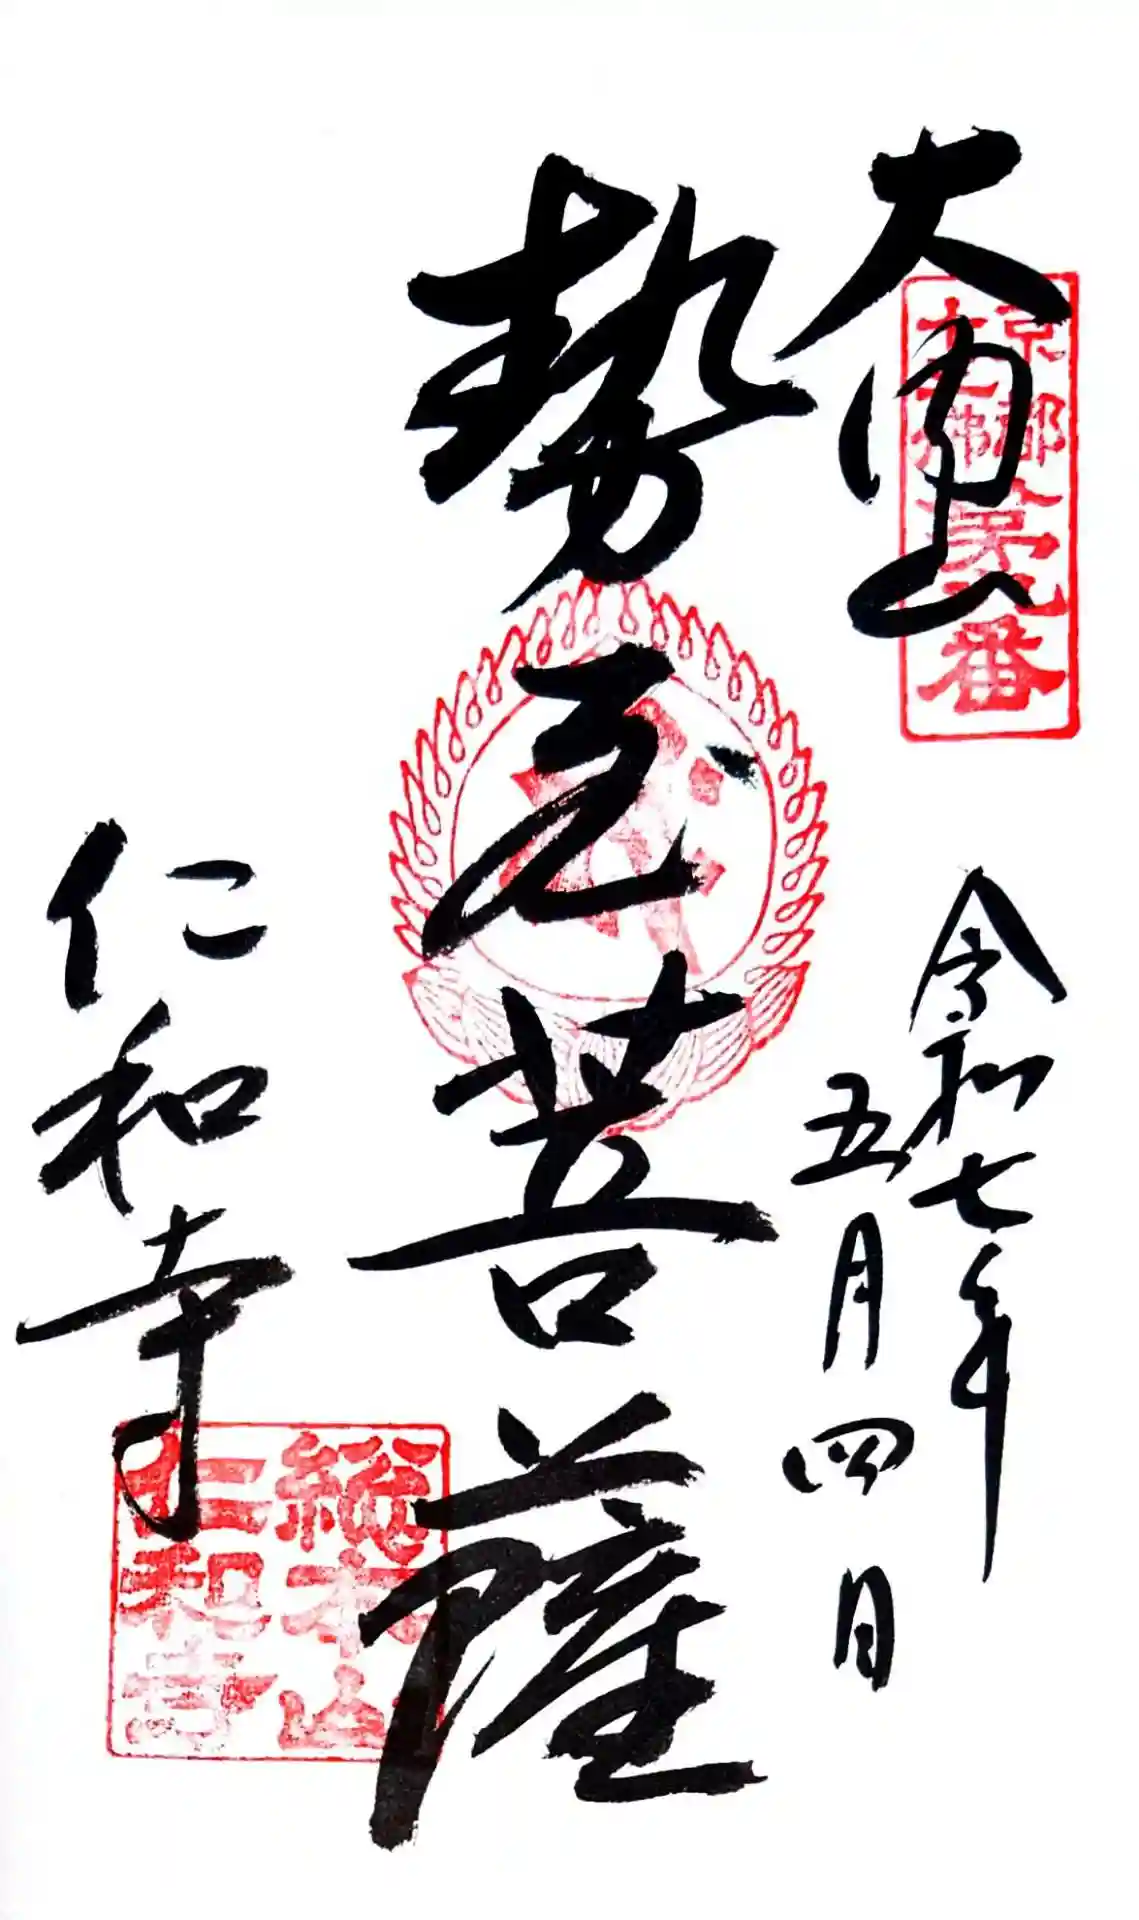 大内山
京都
十三佛
第九番
令和七年
五月四日
勢至菩薩
仁和寺
総本山
仁和寺